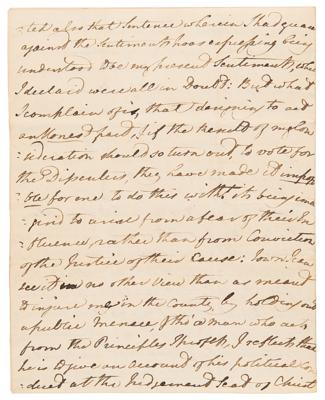 ted also that Sentence wherein I had quar
against the Sentiments hoas expressing being
understood to be my present Sentiments, whi
I declar'd were all in Doubt: But what
I complain of is, that designing to act
an Honest part, & if the Result of my Con
sideration should so turn out, to vote for
the Dissenters, they have made it impos
ible for me to do this with its being ima
gined to arise from a fear of their In
fluence, rather than from Conviction
of the Justice of their Cause: I own I can
see it in no other View than as meant
to injure me in the County, by holding out
a public Menace & tho' a man who acts
from the Principles I profess, & reflects that
he is to give an account of his political Con
duct at the Judgement Seat of Christ